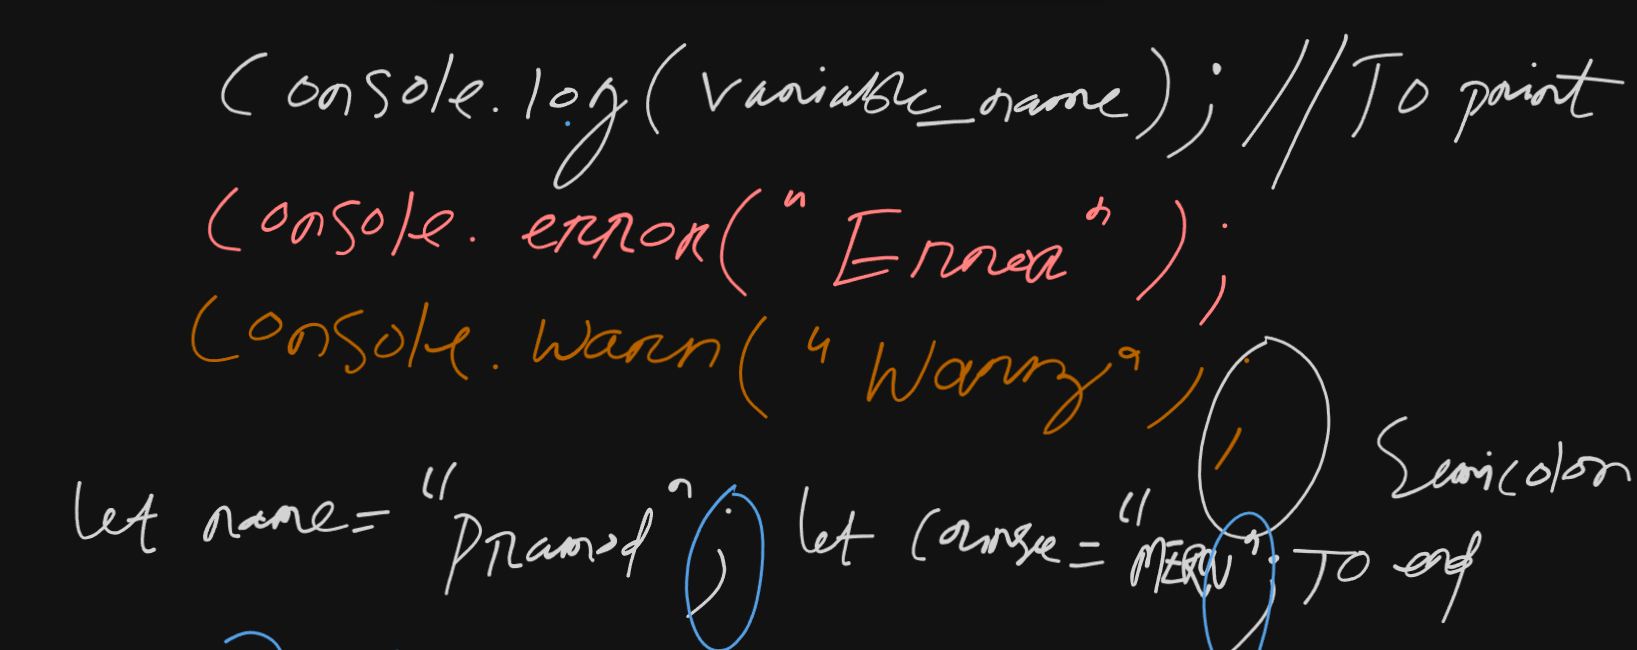 Console.log(variable_name); // To print
Console.error("Error");
Console.warn("Warning");
Semicolon
let name = "Pramod"; let course = "MERN"; To end